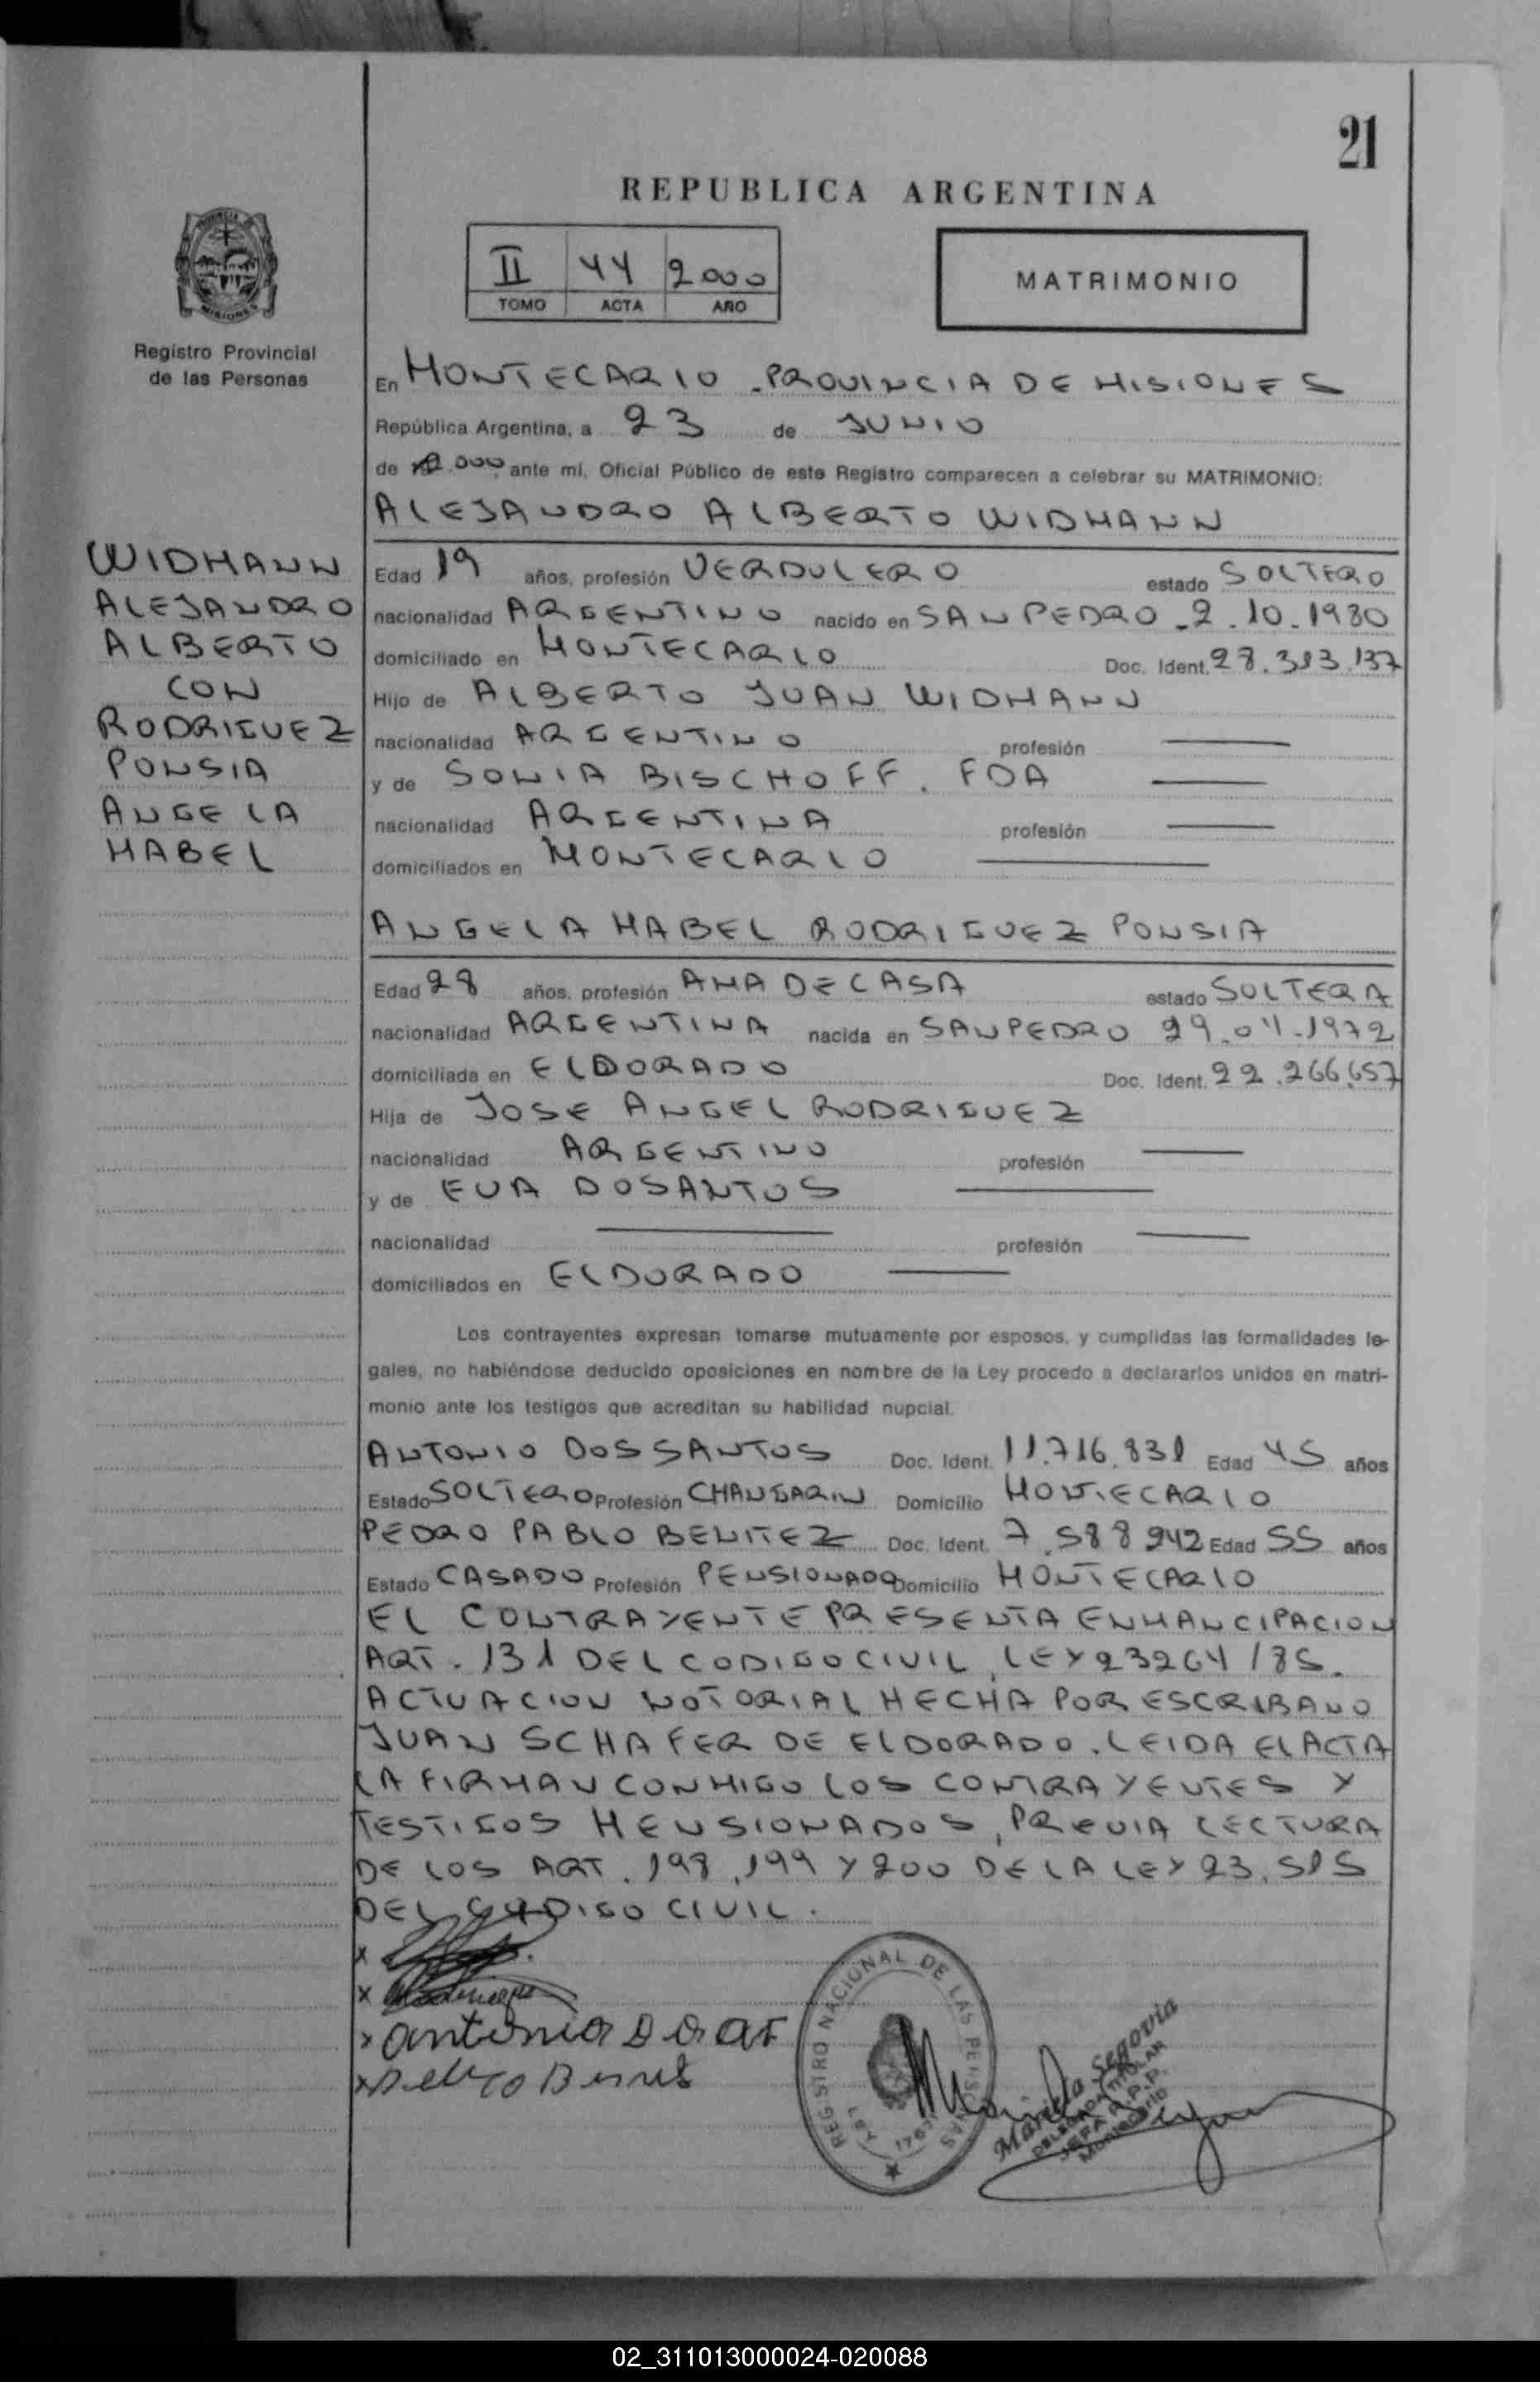 21
REPUBLICA ARGENTINA
II 44 2000
TOMO ACTA AÑO
MATRIMONIO
Registro Provincial
de las Personas
En MONTECARLO - PROVINCIA DE MISIONES
República Argentina, a 23 de JUNIO
de 2.000 ante mí, Oficial Público de este Registro comparecen a celebrar su MATRIMONIO:
ALEJANDRO ALBERTO WIDMANN
WIDMANN
ALEJANDRO
ALBERTO
CON
RODRIGUEZ
PONSIA
ANGELA
MABEL
Edad 19 años, profesión VERDULERO estado SOLTERO
nacionalidad ARGENTINO nacido en SAN PEDRO - 2.10.1980
domiciliado en MONTECARLO Doc. Ident. 28.313.137
Hijo de ALBERTO JUAN WIDMANN
nacionalidad ARGENTINO profesión
y de SONIA BISCHOFF. FDA
nacionalidad ARGENTINA profesión
domiciliados en MONTECARLO
ANGELA MABEL RODRIGUEZ PONSIA
Edad 28 años, profesión AMA DE CASA estado SOLTERA
nacionalidad ARGENTINA nacida en SAN PEDRO 29.04.1972
domiciliada en ELDORADO Doc. Ident. 22.266.657
Hija de JOSE ANGEL RODRIGUEZ
nacionalidad ARGENTINO profesión
y de EVA DOSANTOS
nacionalidad profesión
domiciliados en ELDORADO
Los contrayentes expresan tomarse mutuamente por esposos, y cumplidas las formalidades le-
gales, no habiéndose deducido oposiciones en nombre de la Ley procedo a declararlos unidos en matri-
monio ante los testigos que acreditan su habilidad nupcial.
ANTONIO DOS SANTOS Doc. Ident. 11.716.831 Edad 45 años
Estado SOLTERO Profesión CHANGARIN Domicilio MONTECARLO
PEDRO PABLO BENITEZ Doc. Ident. 7.588942 Edad 55 años
Estado CASADO Profesión PENSIONADO Domicilio MONTECARLO
EL CONTRAYENTE PRESENTA ENMANCIPACION
ART. 131 DEL CODIGO CIVIL, LEY 23264/85.
ACTUACION NOTORIAL HECHA POR ESCRIBANO
JUAN SCHAFER DE ELDORADO. LEIDA EL ACTA
LA FIRMAN CONMIGO LOS CONTRAYENTES Y
TESTIGOS MENSIONADOS, PREVIA LECTURA
DE LOS ART. 198, 199 Y 200 DE LA LEY 23.515
DEL CODIGO CIVIL.
x
x
x
x
REGISTRO NACIONAL DE LAS PERSONAS
LEY 17671
Mariela Segovia
DELEGADA TITULAR
JEFA R.P.P.
Montecarlo
02_311013000024-020088